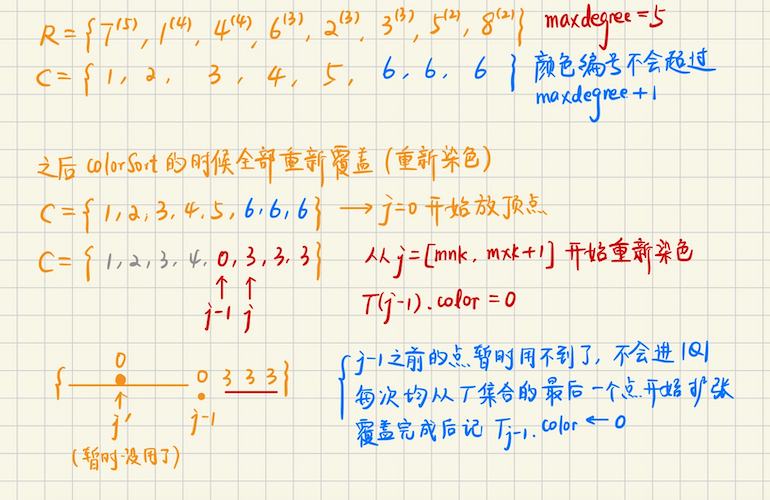 R = { 7⁽⁵⁾, 1⁽⁴⁾, 4⁽⁴⁾, 6⁽³⁾, 2⁽³⁾, 3⁽³⁾, 5⁽²⁾, 8⁽²⁾} maxdegree = 5
C = { 1, 2, 3, 4, 5, 6, 6, 6 } 颜色编号不会超过
maxdegree + 1
之后 colorSort 的时候全部重新覆盖 (重新染色)
C = { 1, 2, 3, 4, 5, 6, 6, 6} → j=0 开始放顶点
C = { 1, 2, 3, 4, 0, 3, 3, 3} 从 j = [mnk, mxk+1] 开始重新染色
↑ ↑
j-1 j T(j-1).color = 0
{ 0 0 3 3 3 }
↑
j' j-1
(暂时没用了)
{ j-1之前的点暂时用不到了, 不会进 |Q|
每次均从T集合的最后一个点开始扩张
覆盖完成后记 Tj-1.color ← 0